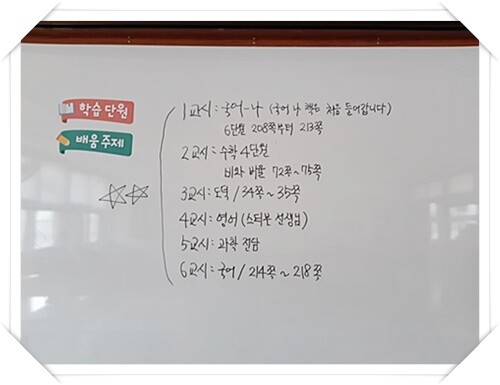 학습 단원
배움 주제
1교시: 국어-나 (국어 나 책은 처음 들어갑니다)
6단원 208쪽부터 213쪽
2교시: 수학 4단원
비와 비율 72쪽~75쪽
3교시: 도덕 / 34쪽~35쪽
4교시: 영어 (스티븐 선생님)
5교시: 과학 전담
6교시: 국어 / 214쪽~218쪽